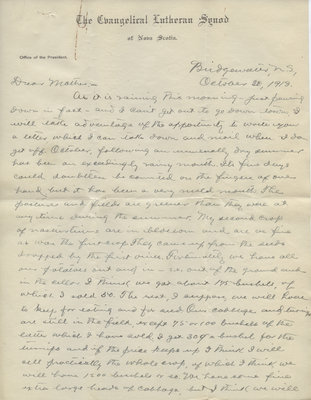 The Evangelical Lutheran Synod
of Nova Scotia.
Office of the President.
Bridgewater N.S.,
October 20, 1919.
Dear Mother:-
As it is raining this morning - just pouring
down in fact - and I can't get out to go down town, I
will take advantage of the opportunity to write you
a letter which I can take down and mail when I do
get off. October, following an unusually dry summer
has been an exceedingly rainy month. Its fine days
could doubtless be counted on the fingers of one
hand, but it has been a very mild month. The
pastures and fields are greener than they were at
any time during the summer. My second crop
of nasturtiums are in blossom and are as fine
as was the first crop. They came up from the seeds
dropped by the first vines. Fortunately we have all
our potatoes out and in - i.e. out of the ground and
in the cellar. I think we got about 175 bushels, of
which I sold 50. The rest, I suppose, we will have
to keep for eating and for seed. Our cabbage and turnips
are still in the field, except 75 or 100 bushels of the
latter which I have sold. I got 30¢ a bushel for the
turnips and if the price keeps up I think I will
sell practically the whole crop of which I think we
will have 1500 bushels or so. We have some fine
extra large heads of cabbage, but I think we will